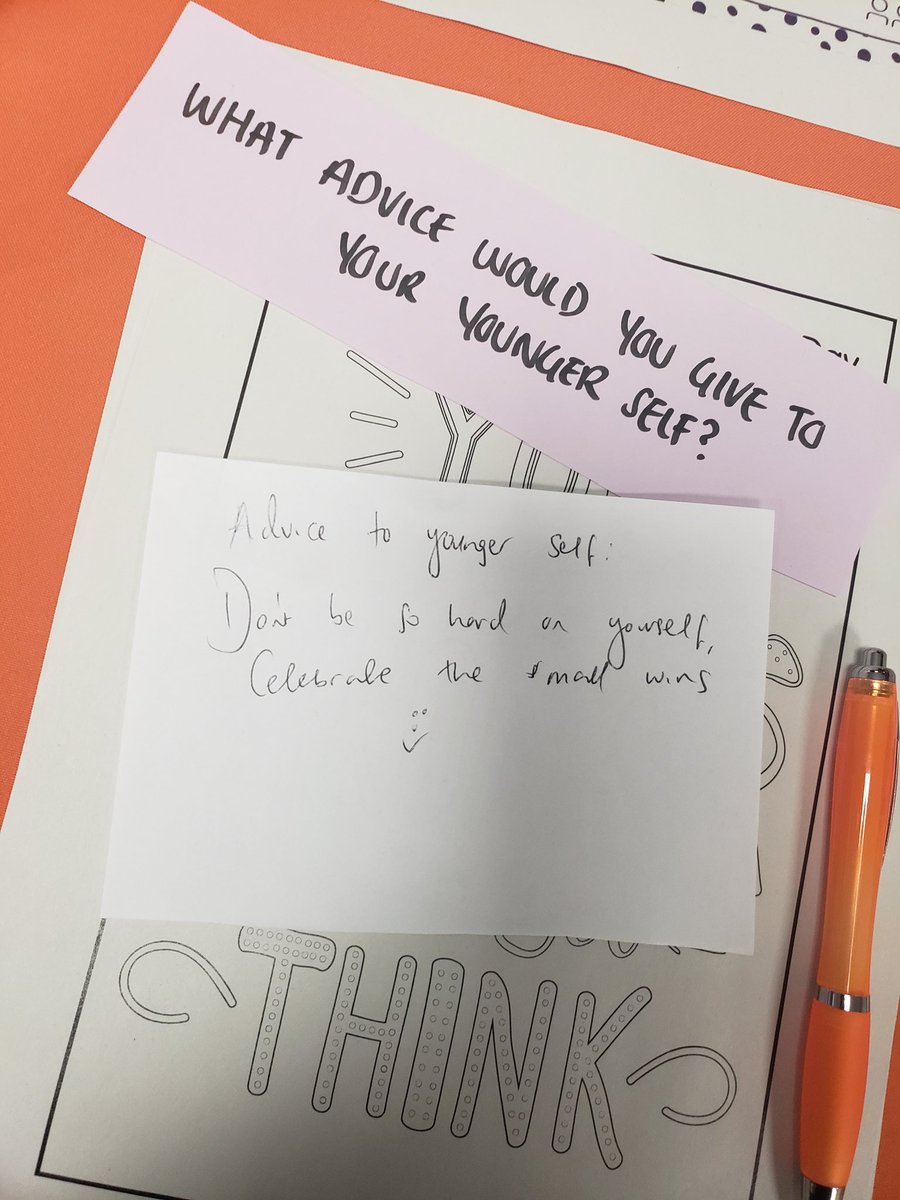 WHAT ADVICE WOULD YOU GIVE TO
YOUR YOUNGER SELF?
Day
Advice to younger self:
Don't be so hard on yourself,
Celebrate the small wins
THINK